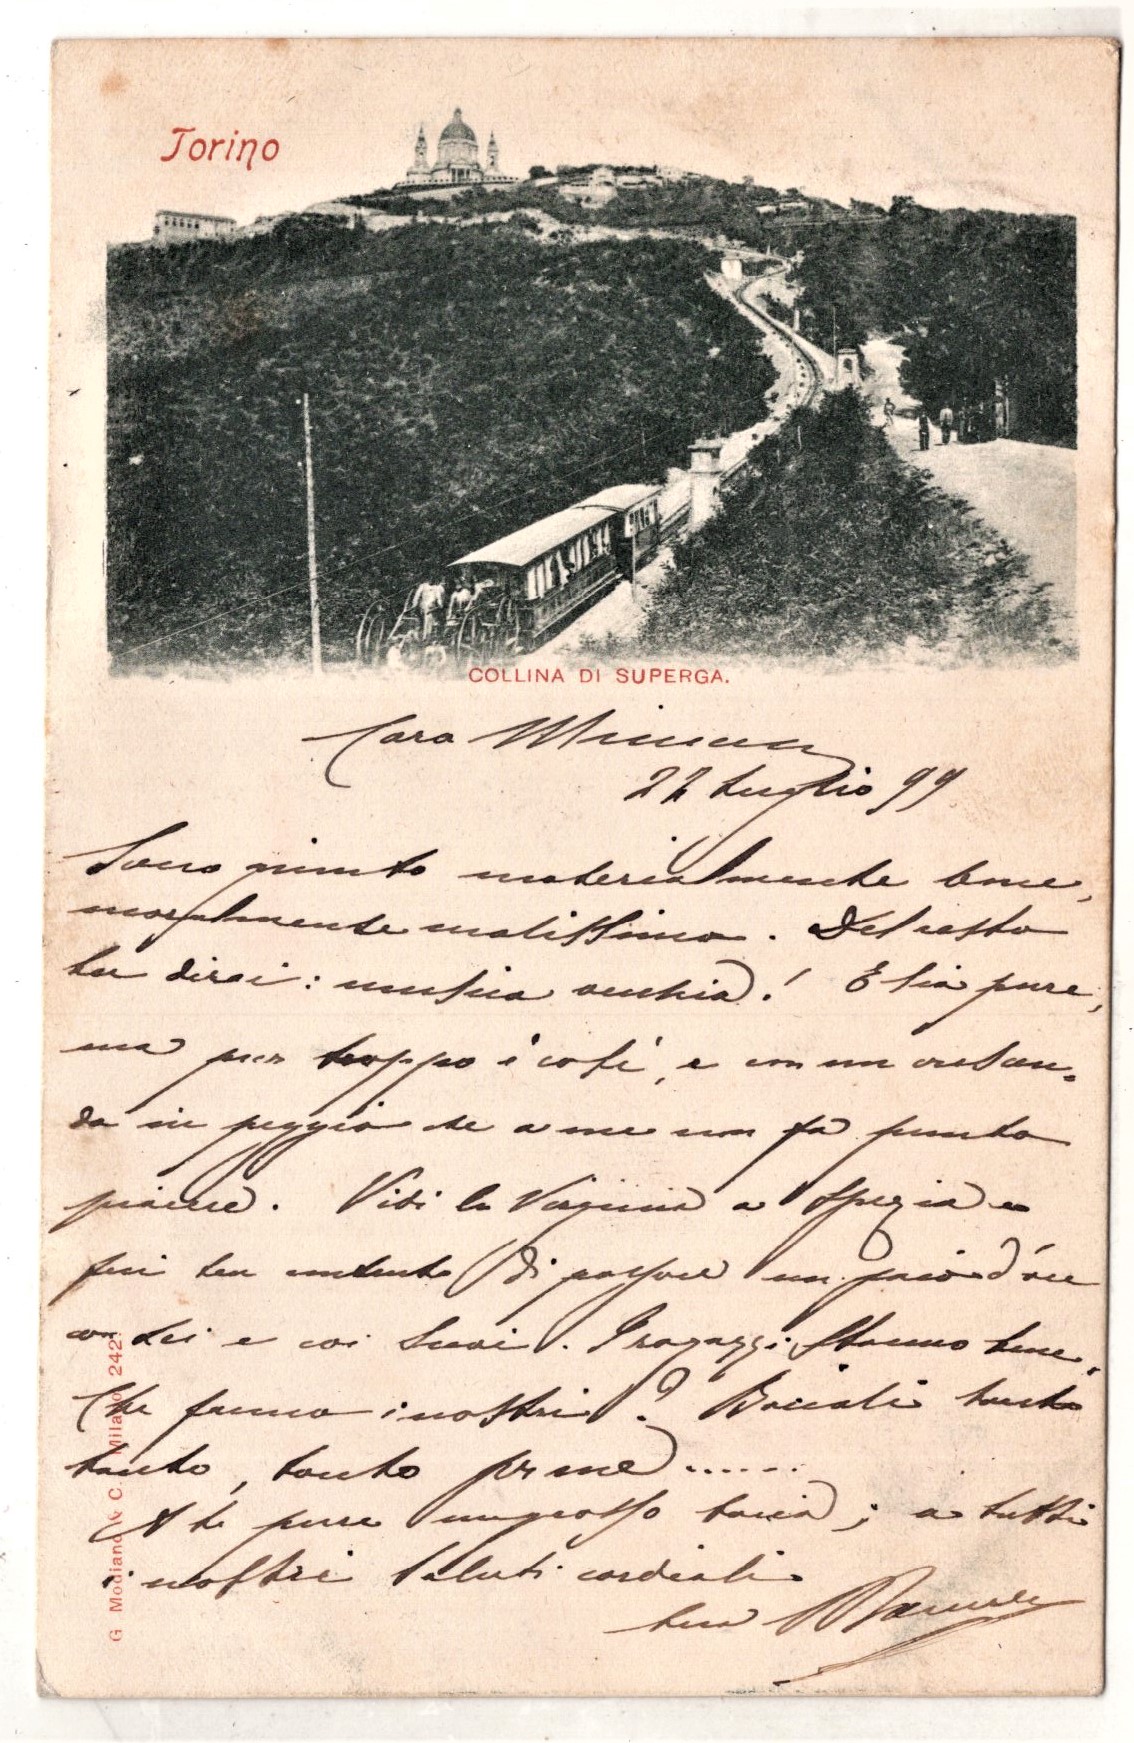 Torino
COLLINA DI SUPERGA.
Cara
22 Luglio 99
Sono giunto materialmente bene,
moralmente malissimo. Del resto
tu dirai: musica vecchia! E sia pure,
ma pur troppo è così, e con un crescen-
do in peggio che a me non fa punto
piacere. Vidi la Virginia a Spezia e
fui ben contento di passare un paio d'ore
con Lei e coi Suoi. I ragazzi stanno bene.
Che fanno i nostri? Baciali tanto
tanto, tanto per me......
A te pure un grosso bacio; a tutti
i nostri saluti cordiali
tuo
G. Modiano & C. Milano 242